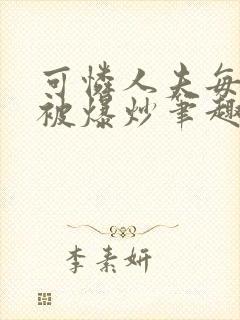 可憐人夫每
被爆炒笔趣
李素妍